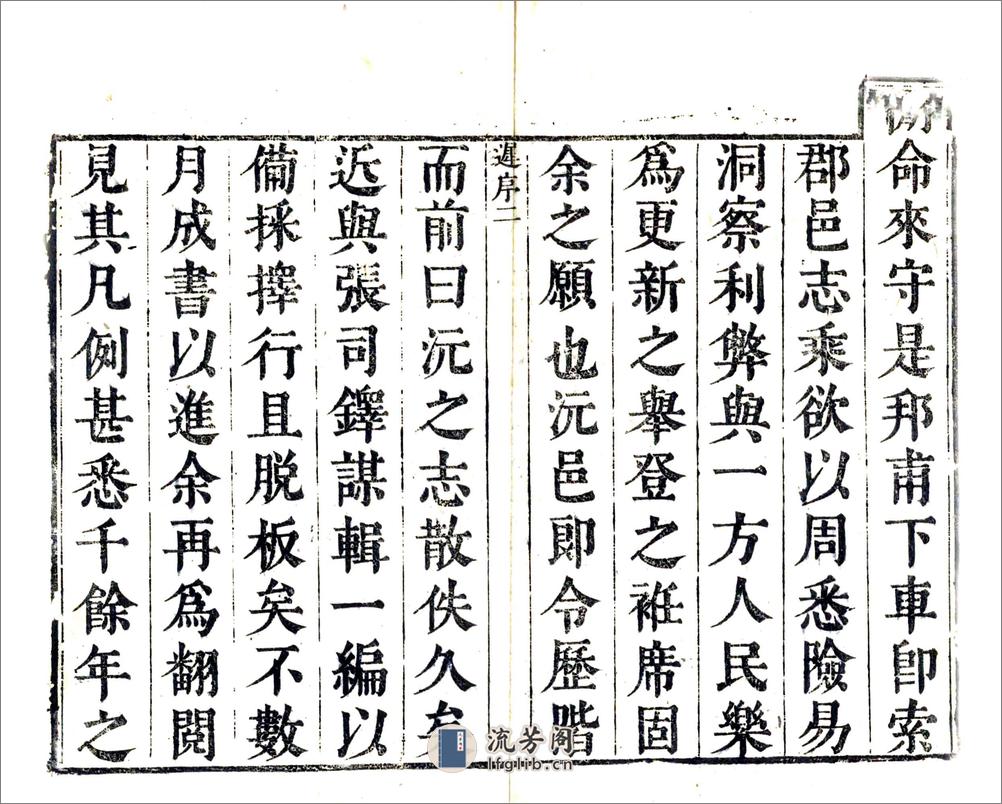 命來守是邦甫下車即索
郡邑志乘欲以周悉險易
洞察利弊與一方人民樂
爲更新之舉登之袵席固
余之願也沅邑即令歷階
遲序二
而前曰沅之志散佚久矣
近與張司鐸謀輯一編以
備採擇行且脱板矣不數
月成書以進余再爲翻閱
見其凡例甚悉千餘年之
流芳阁
lfglib.cn